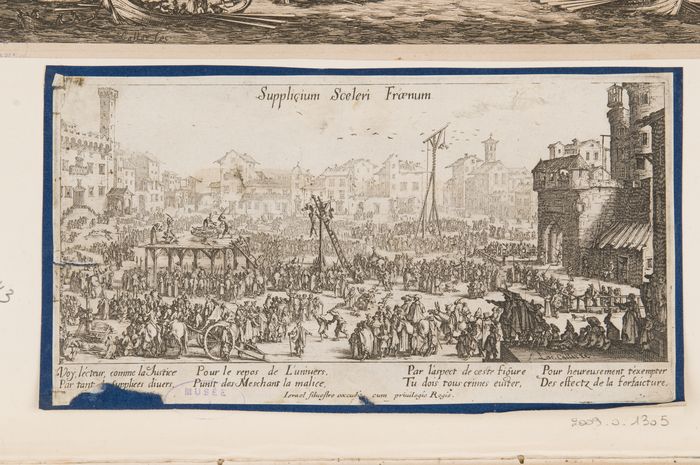 Supplicium Sceleri Frœnum
Voy, lecteur, comme la Justice
Par tant supplices divers,
Pour le repos de Lunivers,
Punit des Meschant la malice,
Par laspect de ceste figure
Tu dois tous crimes euiter,
Pour heureusement texempter
Des effectz de la forfaicture,
Israel siluestre excudit, cum privilegio Regis.
MUSÉE
2009.0.1305